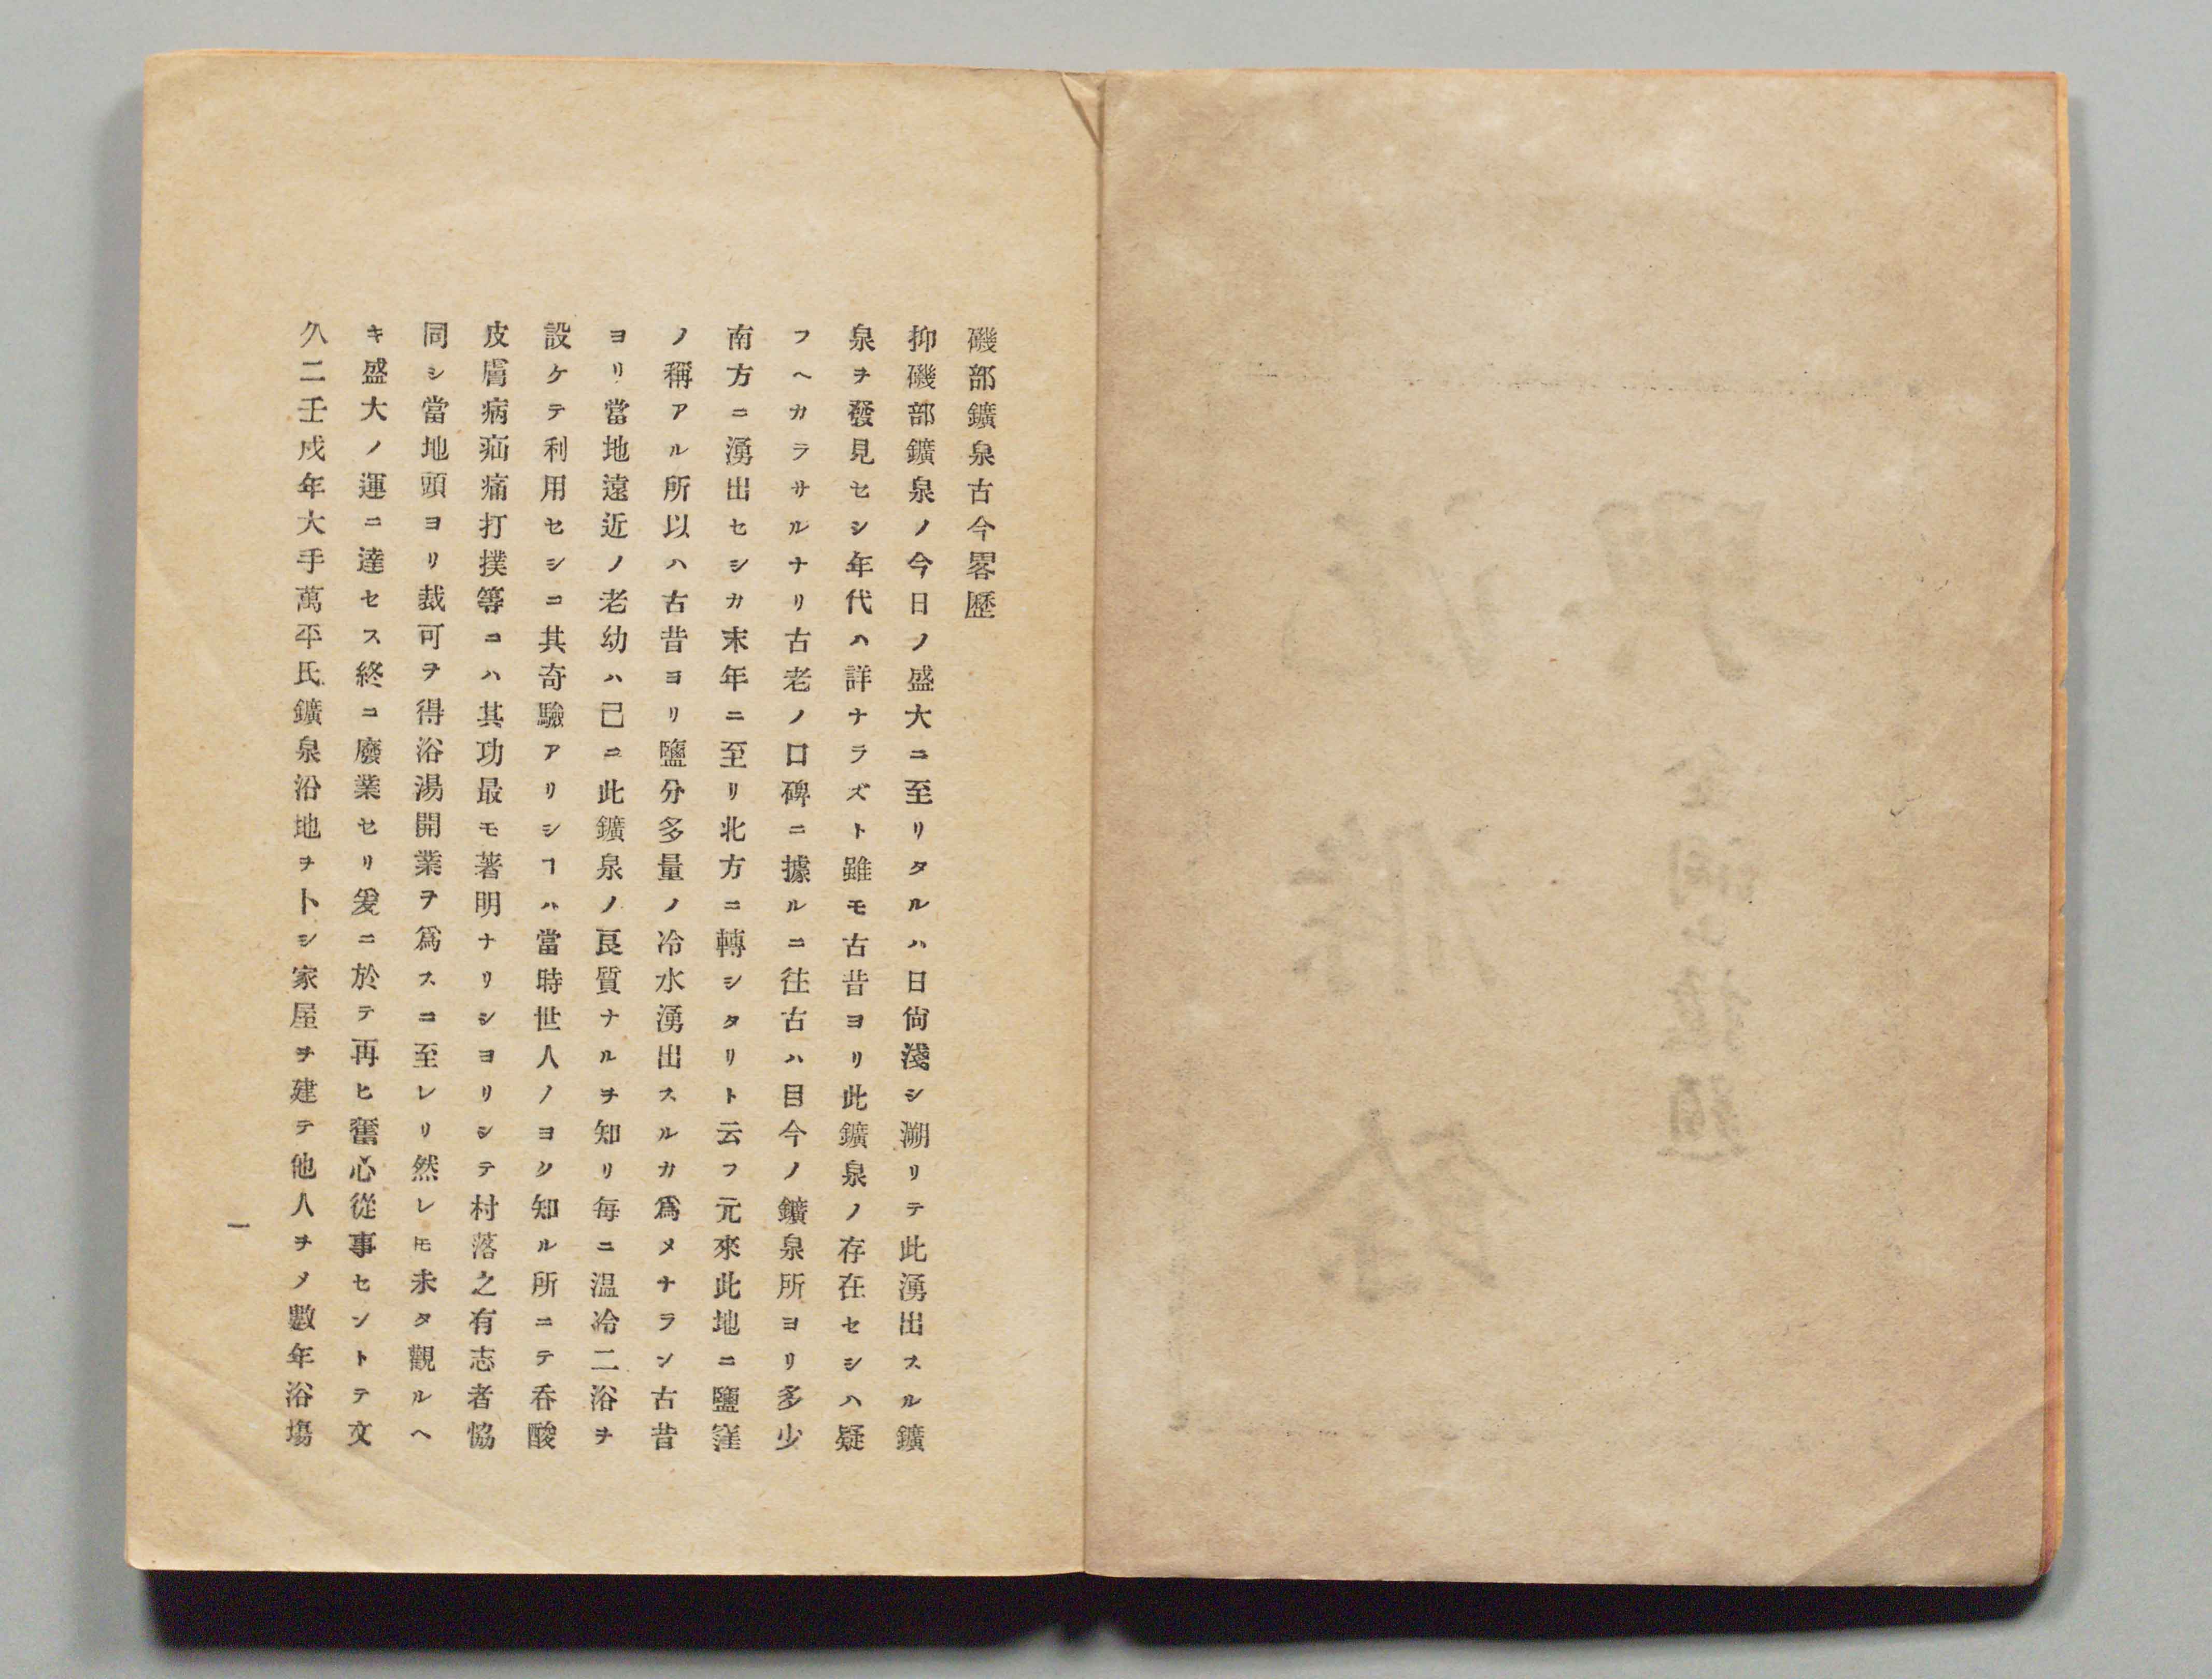 磯部鑛泉古今畧歷
抑磯部鑛泉ノ今日ノ盛大ニ至リタルハ日尙淺シ溯リテ此湧出スル鑛
泉ヲ發見セシ年代ハ詳ナラズト雖モ古昔ヨリ此鑛泉ノ存在セシハ疑
フヘカラサルナリ古老ノ口碑ニ據ルニ往古ハ目今ノ鑛泉所ヨリ多少
南方ニ湧出セシカ末年ニ至リ北方ニ轉シタリト云フ元來此地ニ鹽窪
ノ稱アル所以ハ古昔ヨリ鹽分多量ノ冷水湧出スルカ爲メナラン古昔
ヨリ當地遠近ノ老幼ハ已ニ此鑛泉ノ良質ナルヲ知リ每ニ温冷二浴ヲ
設ケテ利用セシニ其奇驗アリシヿハ當時世人ノヨク知ル所ニテ呑酸
皮膚病疝痛打撲等ニハ其功最モ著明ナリシヨリシテ村落之有志者恊
同シ當地頭ヨリ裁可ヲ得浴湯開業ヲ爲スニ至レリ然レ𪜈未タ觀ルヘ
キ盛大ノ運ニ達セス終ニ廢業セリ爰ニ於テ再ヒ奮心從事セントテ文
久二壬戌年大手萬平氏鑛泉沿地ヲトシ家屋ヲ建テ他人ヲメ數年浴塲
一